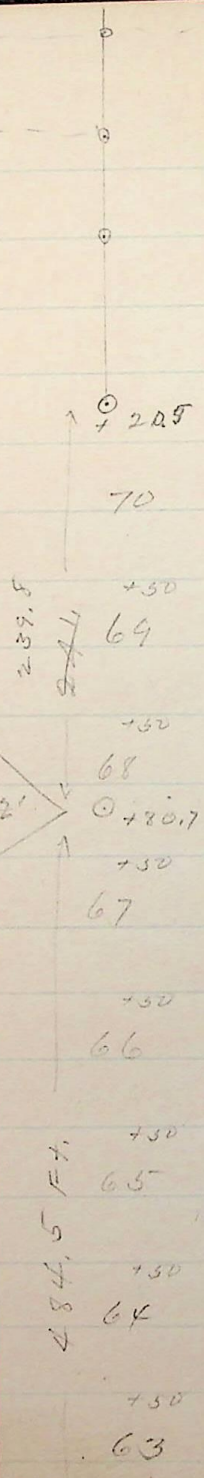 + 20.5
70
+50
69
239.8
241
+50
68
2'
+80.7
+50
67
+50
66
+50
65
484.5 Ft.
+50
64
+50
63